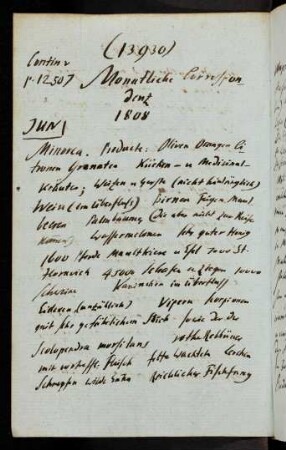 (13930)
Contin v
p. 12507
Monatliche Correspon
denz
1808
JUNI
Minorca. Products: Oliven Orangen Ci
tronen Granaten Küchen - u Medicinal
Kräuter; Waizen u Gerste (nicht hinlänglich)
Wein (im Überfluß) Birnen Feigen Maul
beeren Palmbäume (die aber nicht zur Reife
kommen) Wassermelonen sehr guter Honig
1600 Pferde Maulthiere u Esel 7000 St
Hornvieh 45000 Schafe u Ziegen 10000
Schweine Kaninchen im Überfluß
Eidexen (unzählich) Vipern Scorpionen
mit sehr gefährlichem Stich sowie der der
Scolopendra morsitans rothe Rebhüner
mit Fleisch fette Wachteln Lerchen
Schnepfen wilde Enten Reichlicher Fischfang